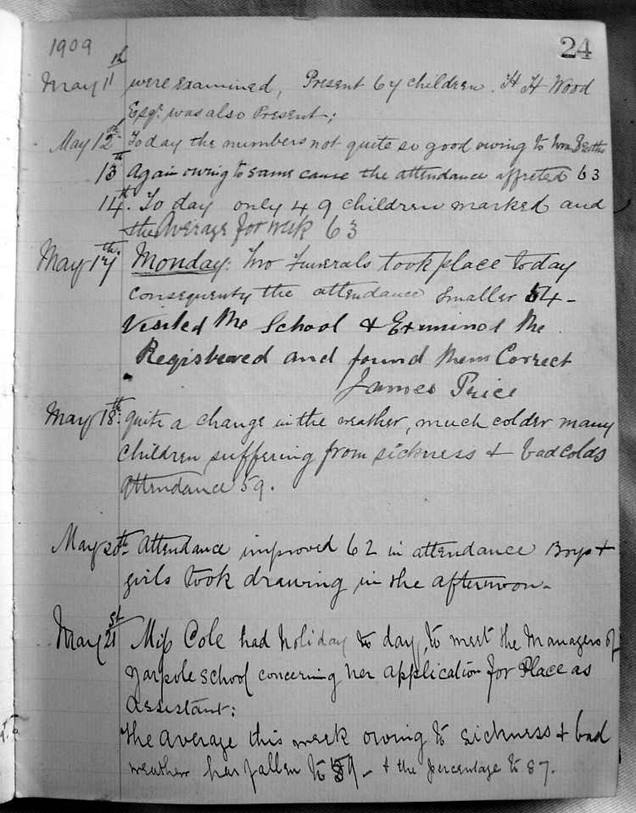 1909
24
May 11th were examined, Present 64 children. H H Wood
Esqr. was also Present;
May 12th Today the numbers not quite so good owing to
13th Again owing to same cause the attendance affected 63
14th. To day only 49 children marked and
the Average for week 63
May 17th. Monday. Two Funerals took place today
consequently the attendance smaller 54-
Visited the School & Exmined the
Registered and found them Correct
James Price
May 18th. quite a change in the weather, much colder many
children suffering from sickness & bad colds
Attendance 59.
May 20th. Attendance improved 62 in attendance Boys &
girls took drawing in the afternoon.
May 21st Miss Cole had holiday to day, to meet the Managers of
Yarpole school concerning her application for Place as
Assistant;
the Average this week owing to sickness & bad
weather has fallen to 59- & the percentage to 87.